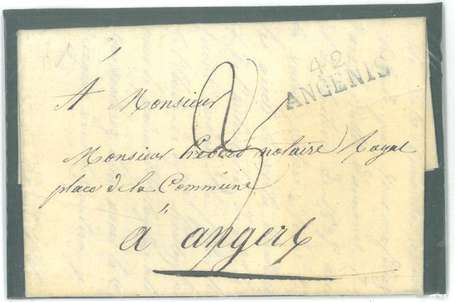 42
ANGENIS
A Monsieur
2
Monsieur notaire Royal
place de la Commune
a angers